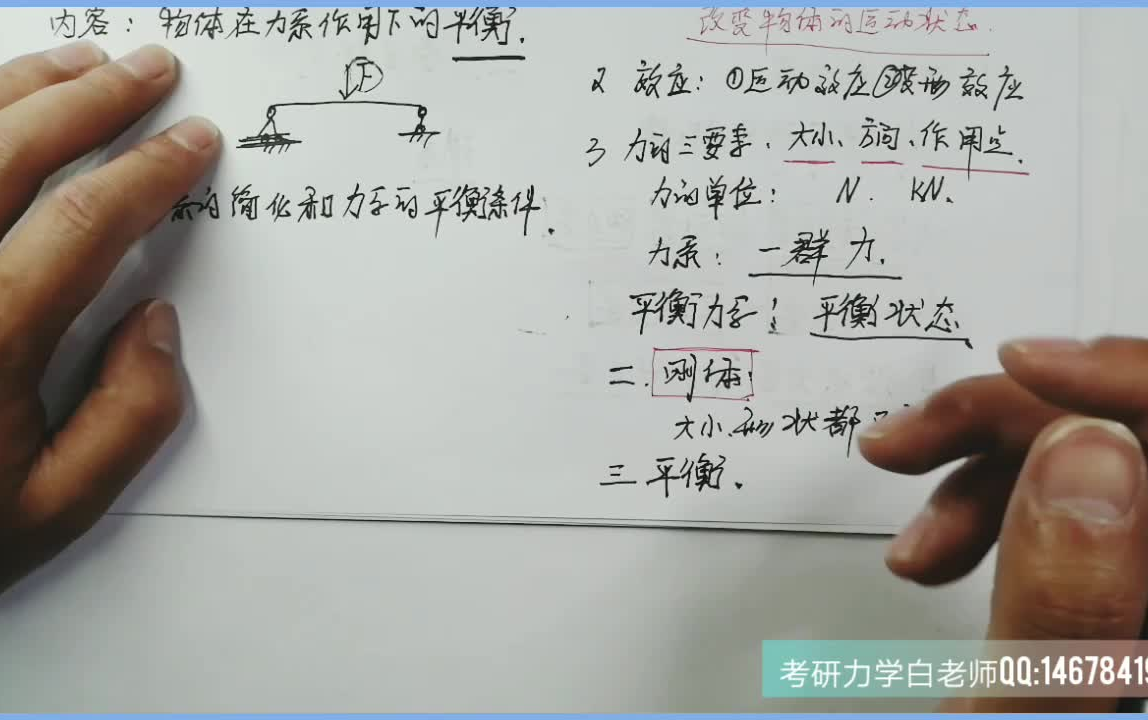 内容：物体在力系作用下的平衡.
F
的简化和力系的平衡条件.
改变物体的运动状态.
2 效应：①运动效应②变形效应
3 力的三要素、大小、方向、作用点.
力的单位： N. KN.
力系：一群力.
平衡力系：平衡状态
二. 刚体：
大小.形状都
三 平衡.
考研力学白老师QQ:14678419